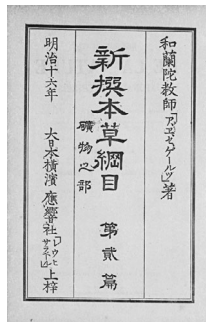 和蘭陀教師「ア、ヱ、セ、ゲールツ」著
新撰本草綱目
礦物之部
第貳篇
明治十六年
大日本横濱 應響社「レウヒ
サラベール」上梓